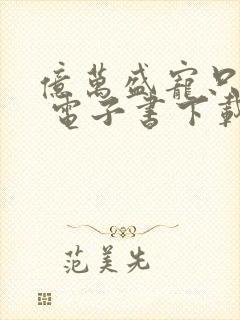 億萬盛寵只
電子書下載
范美先